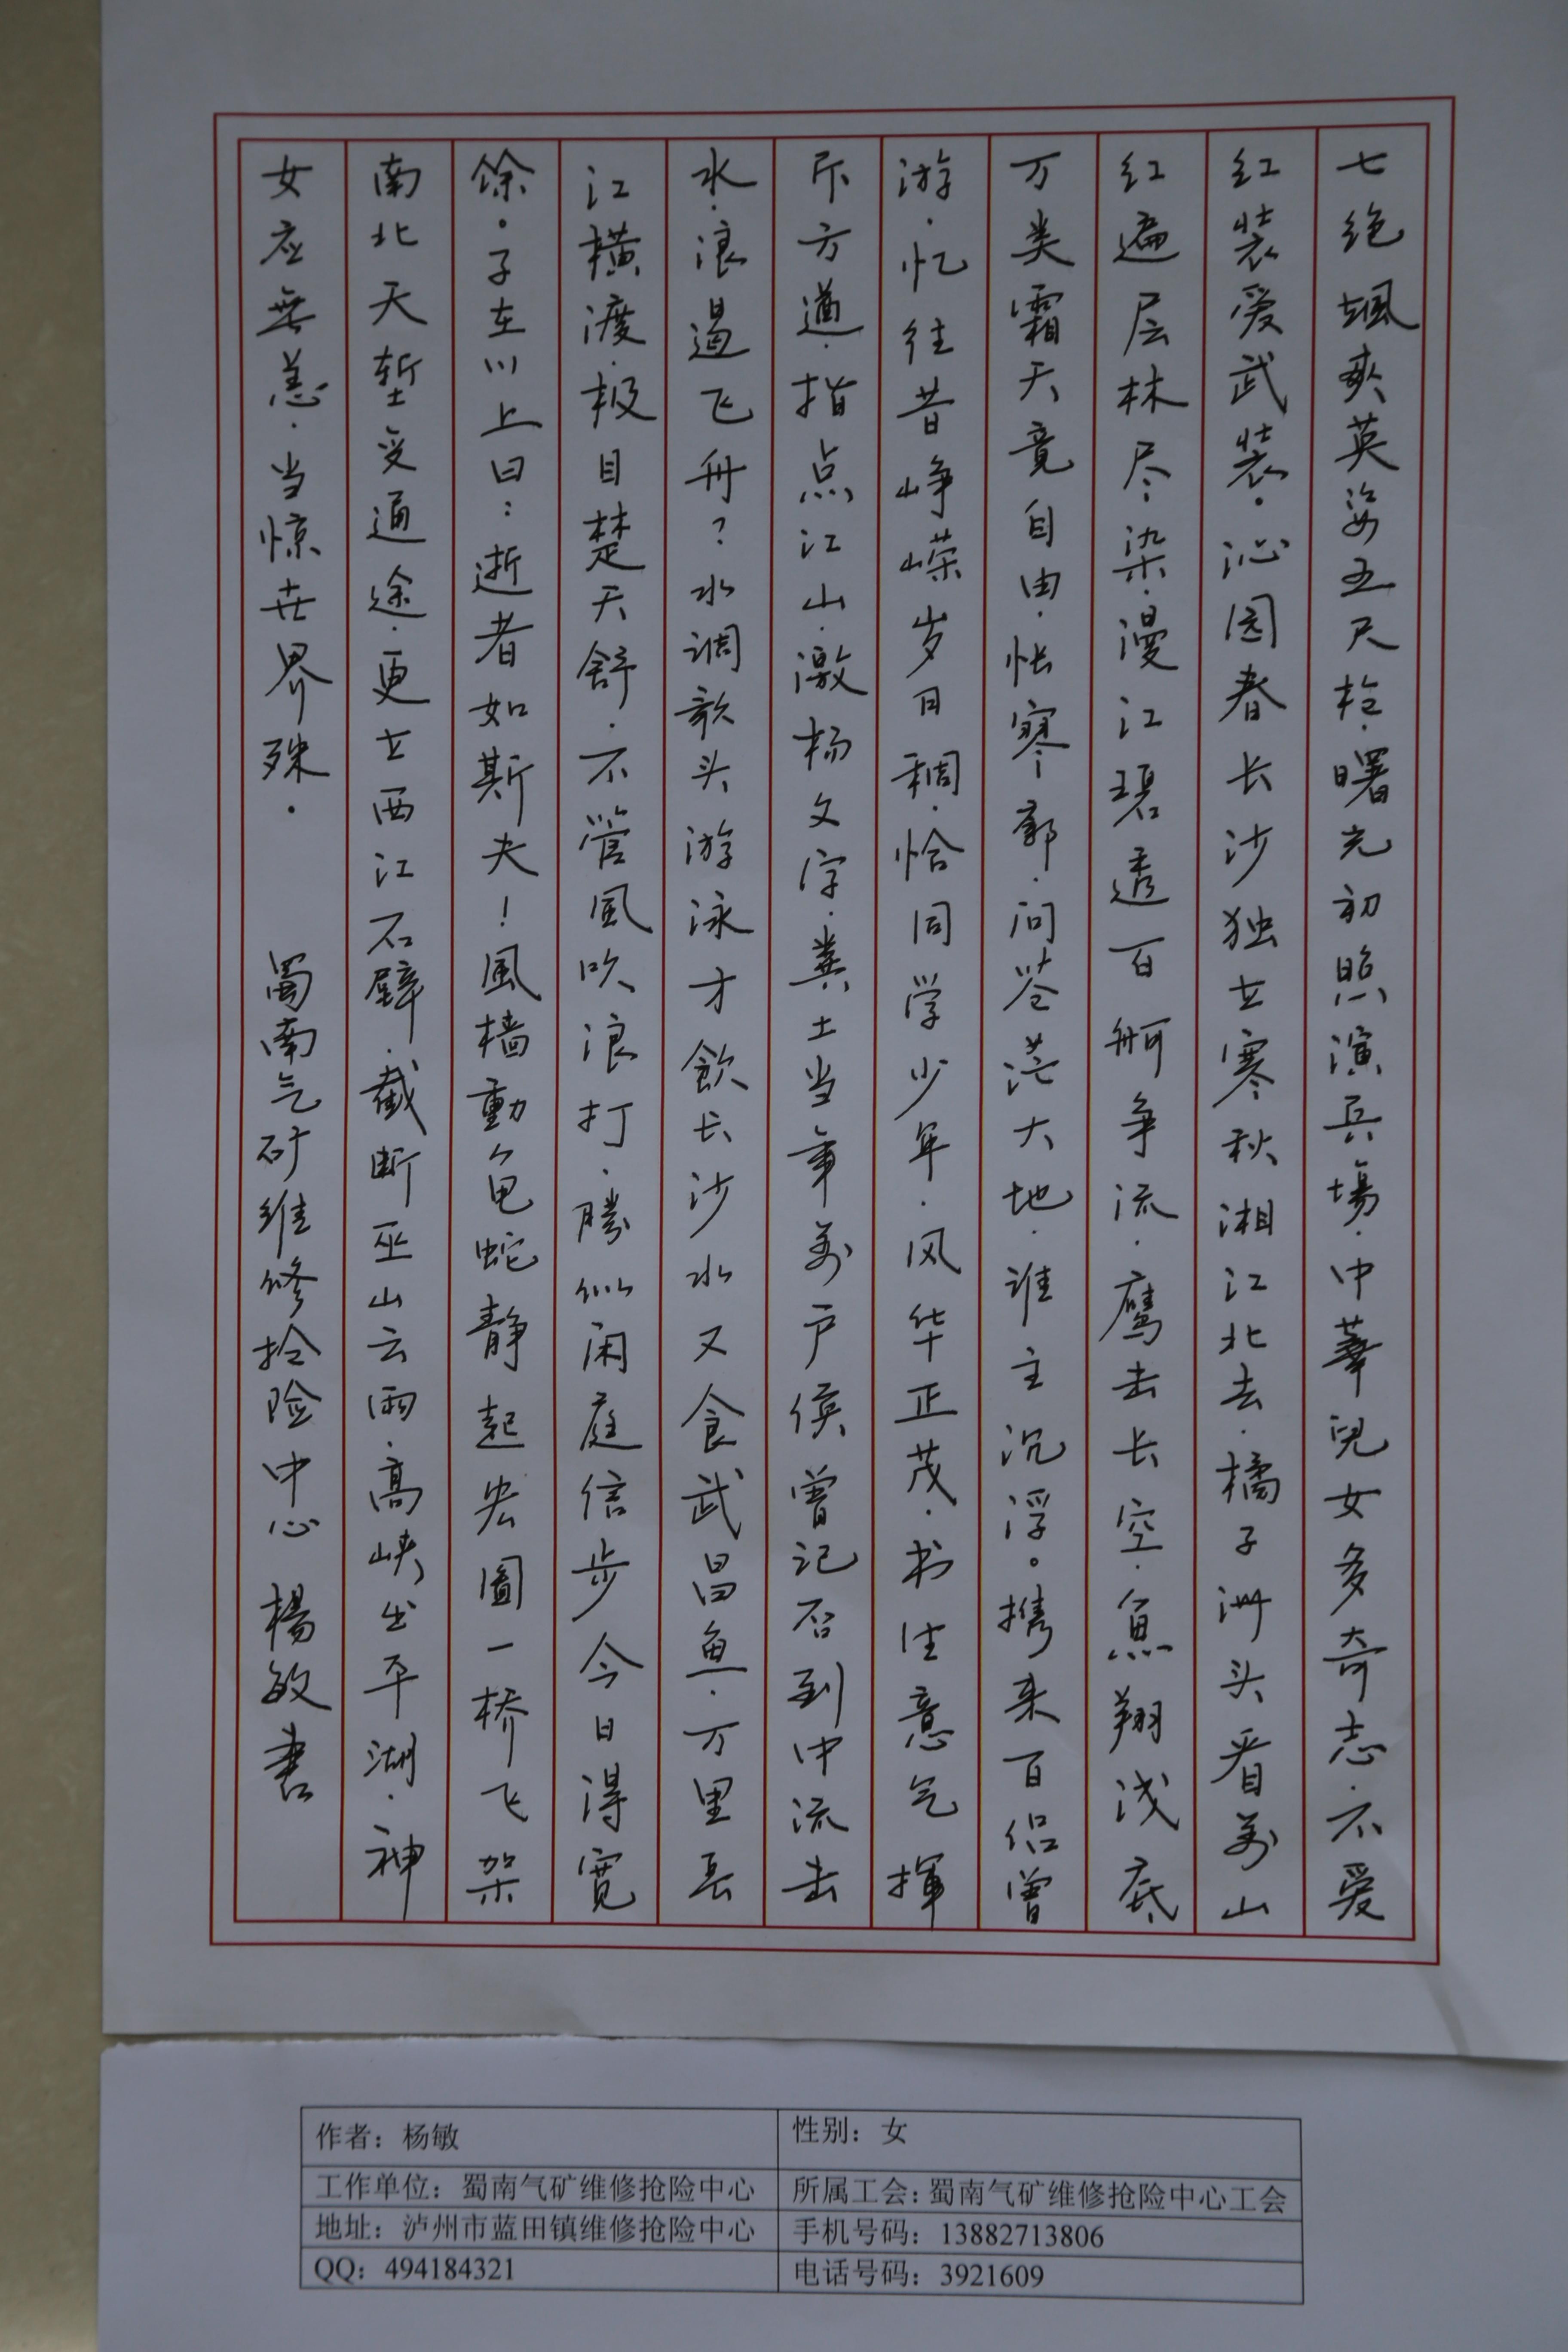 七绝飒爽英姿五尺枪.曙光初照演兵場.中華兒女多奇志.不爱
红装爱武装。沁园春长沙独立寒秋湘江北去.橘子洲头看萬山
红遍层林尽染.漫江碧透百舸争流.鹰击长空.魚翔浅底
万类霜天竟自由.怅寥廓.问苍茫大地.谁主沉浮。携来百侣曾
游.忆往昔峥嵘岁月稠.恰同学少年.风华正茂.书生意气揮
斥方遒.指点江山.激杨文字.粪土当年萬户侯曾记否到中流击
水.浪遏飞舟?水调歌头游泳才飲长沙水又食武昌鱼.万里長
江横渡.极目楚天舒.不管風吹浪打.勝似闲庭信步今日得宽
馀。子在川上曰:逝者如斯夫!風樯動龟蛇静起宏圖一桥飞架
南北天堑变通途.更立西江石壁.截断巫山云雨.高峡出平湖.神
女应無恙.当惊世界殊.蜀南气矿维修抢险中心楊敏書
作者：杨敏
性别：女
工作单位：蜀南气矿维修抢险中心
所属工会：蜀南气矿维修抢险中心工会
地址：泸州市蓝田镇维修抢险中心
手机号码：13882713806
QQ：494184321
电话号码：3921609